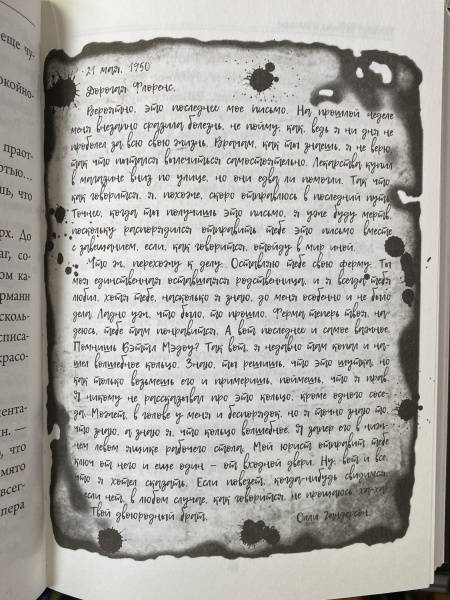 еще чу-
окойно-
праот-
отью...
шь, что
рх. До
аг, со-
ом ка-
рманн
сколь-
списа-
красо-
ента-
ин. —
о, что
мято
всег-
пера
21 мая, 1950
Дорогая Флоренс,
Вероятно, это последнее мое письмо. На прошлой неделе
меня внезапно сразила болезнь, не пойму, как, ведь я ни дня не
проболел за всю свою жизнь. Врачам, как ты знаешь, я не верю,
так что пытался вылечиться самостоятельно. Лекарства купил
в магазине вниз по улице, но они едва ли помогли. Так что,
как говорится, я, похоже, скоро отправлюсь в последний путь.
Точнее, когда ты получишь это письмо, я уже буду мертв,
поскольку распорядился отправить тебе это письмо вместе
с завещанием, если, как говорится, отойду в мир иной.
Что ж, перехожу к делу. Оставляю тебе свою ферму. Ты
моя единственная оставшаяся родственница, и я всегда тебя
любил, хотя тебе, насколько я знаю, до меня особенно и не было
дела. Ладно уж, что было, то прошло. Ферма теперь твоя, на-
деюсь, тебе там понравится. А вот последнее и самое важное.
Помнишь Бэттл Мэдоу? Так вот, я недавно там копал и на-
шел волшебное кольцо. Знаю, ты решишь, что это шутка, но
как только возьмешь его и примеришь, поймешь, что я прав.
Я никому не рассказывал про это кольцо, кроме одного сосе-
да. Может, в голове у меня и беспорядок, но я точно знаю то,
что знаю, а знаю я, что кольцо волшебное. Я запер его в ниж-
нем левом ящике рабочего стола. Мой юрист отправит тебе
ключ от него и еще один – от входной двери. Ну, вот и все,
что я хотел сказать. Если повезет, когда-нибудь свидимся,
если нет, в любом случае, как говорится, не прощаюсь, ха-ха!
Твой двоюродный брат, Олли Гандерсон.